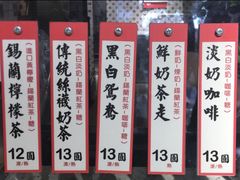 錫蘭檸檬茶
(進口黃檸檬·錫蘭紅茶·糖)
12圓
凍/熱
傳統絲襪奶茶
(黑白淡奶·錫蘭紅茶·糖)
13圓
凍/熱
黑白鴛鴦
(黑白淡奶·錫蘭紅茶·咖啡·糖)
13圓
凍/熱
鮮奶茶走
(鮮奶·煉奶·錫蘭紅茶)
13圓
凍/熱
淡奶咖啡
(黑白淡奶·咖啡·糖)
13圓
凍/熱